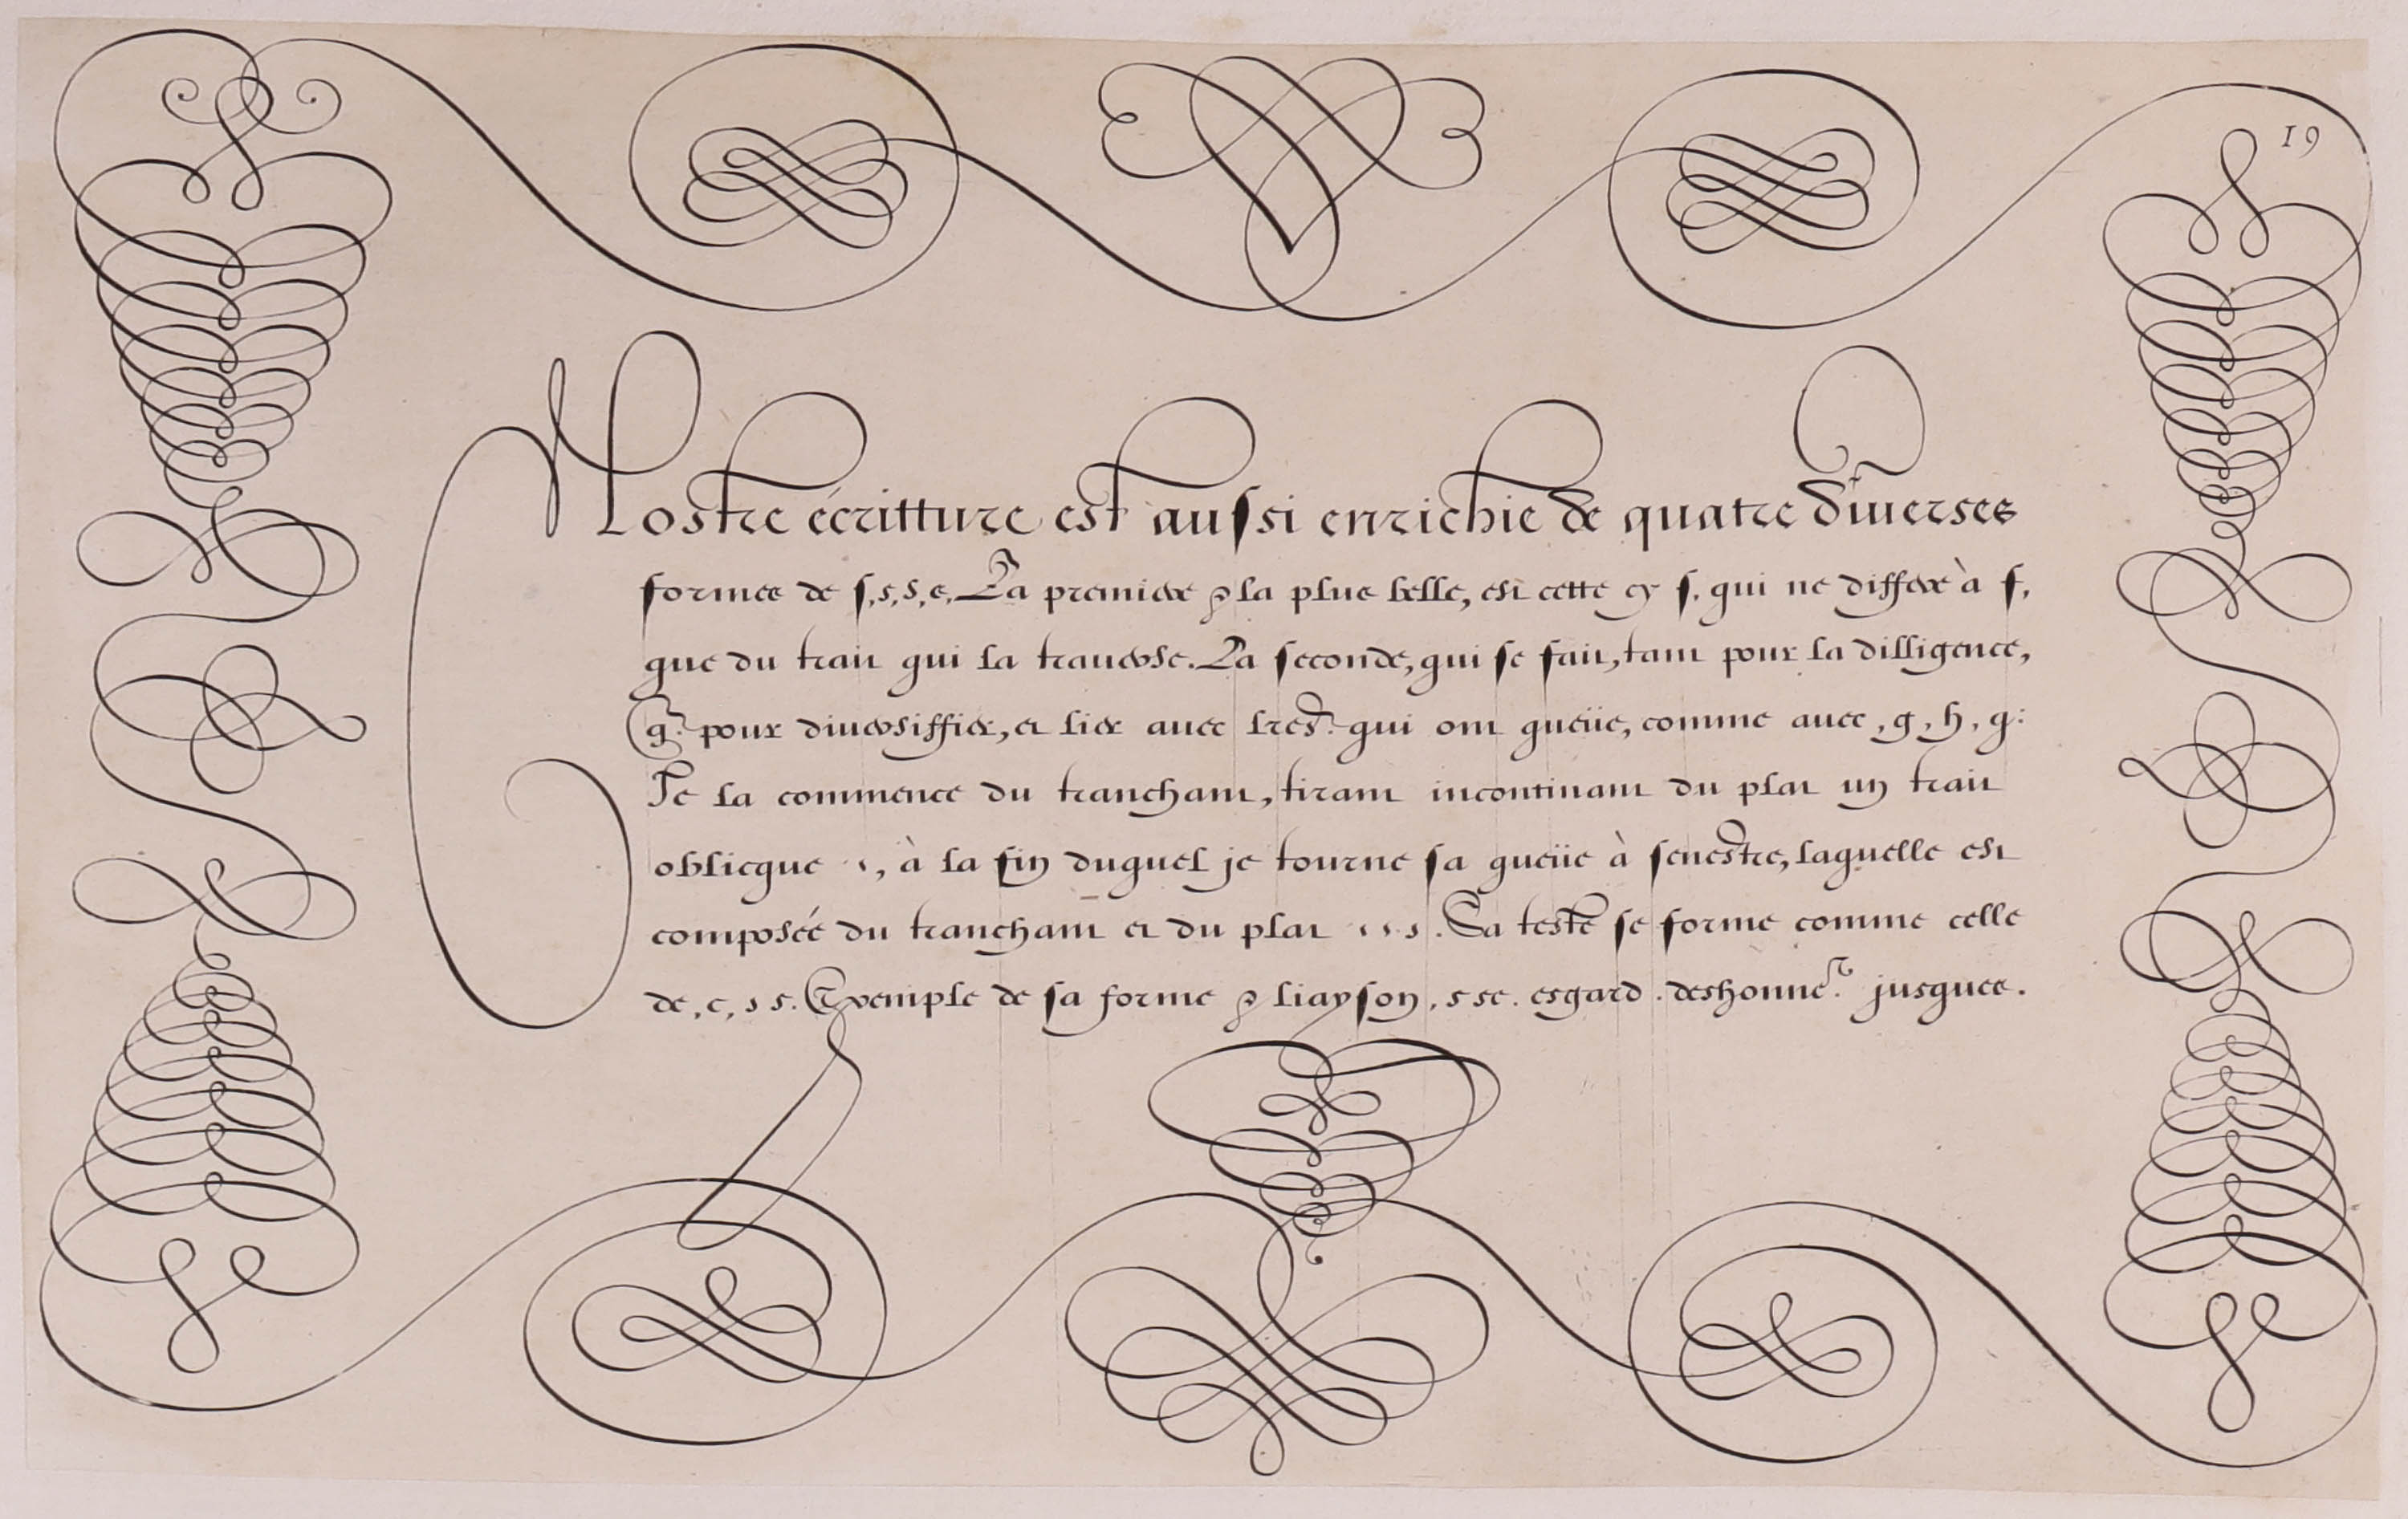 19
Nostre écritture est aussi enrichie de quatre diuerses
formes de ſ, s, s, s. La premiere & la plus belle, est cette cy ſ. qui ne differe à f,
que du trait qui la trauerse. La seconde, qui se fait, tant pour la dilligence,
q. pour diuersiffier, et lier auec lres. qui ont queüe, comme auec, g, h, q:
Je la commence du tranchant, tirant incontinant du plat un trait
oblicque ⸌, à la fin duquel je tourne sa queüe à senestre, laquelle est
composée du tranchant et du plat ⸌ ⸌ s. Sa teste se forme comme celle
de, c, s s. Exemple de sa forme & liayson, s se. esgard. deshonne. jusques.